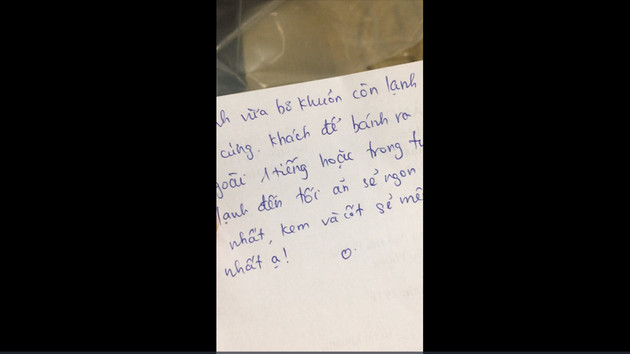 vừa bỏ khuôn còn lạnh
cứng. Khách để bánh ra
1 tiếng hoặc trong
lạnh đến tối ăn sẽ ngon
nhất, kem và cốt sẽ
nhất ạ!